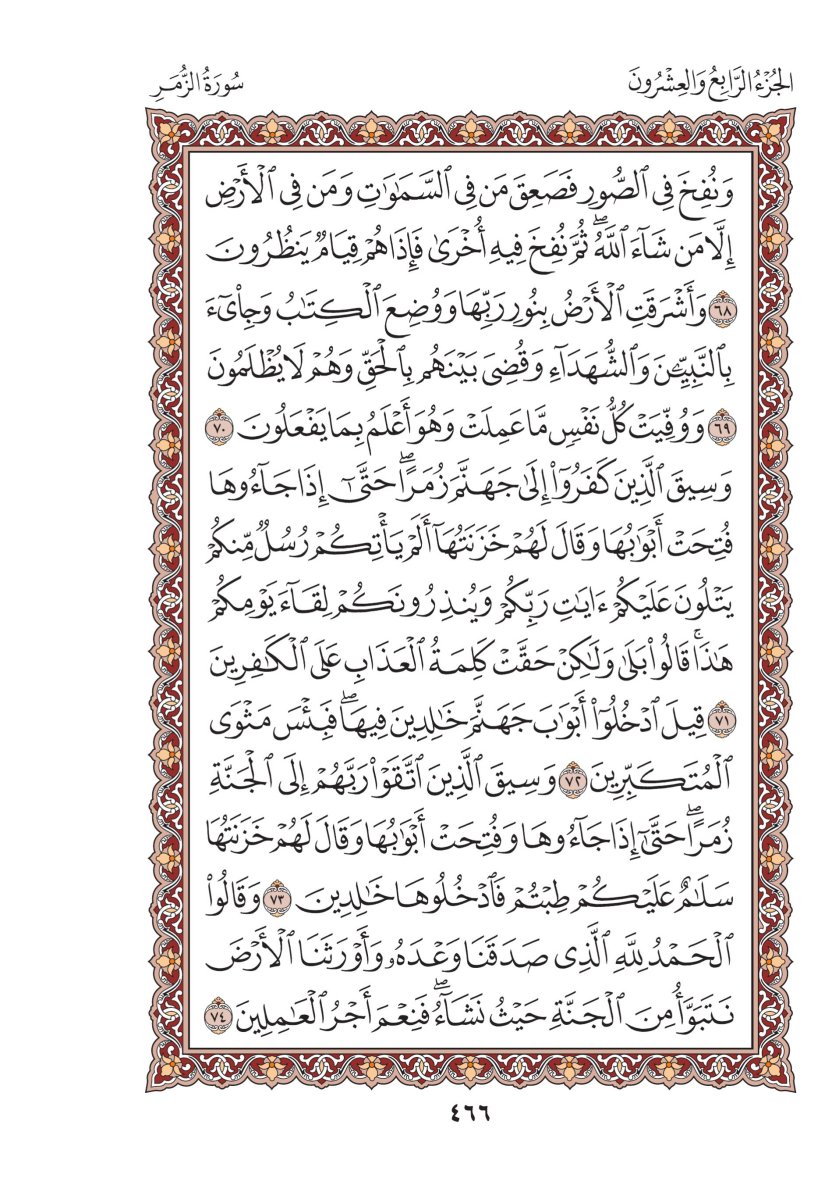 الجُزْءُ الرَّابِعُ وَالعِشْرُونَ
سُورَةُ الزُّمَرِ
وَنُفِخَ فِي ٱلصُّورِ فَصَعِقَ مَن فِي ٱلسَّمَٰوَٰتِ وَمَن فِي ٱلْأَرْضِ
إِلَّا مَن شَآءَ ٱللَّهُۖ ثُمَّ نُفِخَ فِيهِ أُخْرَىٰ فَإِذَا هُمْ قِيَامٌ يَنظُرُونَ
٦٨ وَأَشْرَقَتِ ٱلْأَرْضُ بِنُورِ رَبِّهَا وَوُضِعَ ٱلْكِتَٰبُ وَجِاْىٓءَ
بِٱلنَّبِيِّـۧنَ وَٱلشُّهَدَآءِ وَقُضِيَ بَيْنَهُم بِٱلْحَقِّ وَهُمْ لَا يُظْلَمُونَ
٦٩ وَوُفِّيَتْ كُلُّ نَفْسٍ مَّا عَمِلَتْ وَهُوَ أَعْلَمُ بِمَا يَفْعَلُونَ ٧٠
وَسِيقَ ٱلَّذِينَ كَفَرُوٓاْ إِلَىٰ جَهَنَّمَ زُمَرًاۖ حَتَّىٰٓ إِذَا جَآءُوهَا
فُتِحَتْ أَبْوَٰبُهَا وَقَالَ لَهُمْ خَزَنَتُهَآ أَلَمْ يَأْتِكُمْ رُسُلٌ مِّنكُمْ
يَتْلُونَ عَلَيْكُمْ ءَايَٰتِ رَبِّكُمْ وَيُنذِرُونَكُمْ لِقَآءَ يَوْمِكُمْ
هَٰذَاۚ قَالُواْ بَلَىٰ وَلَٰكِنْ حَقَّتْ كَلِمَةُ ٱلْعَذَابِ عَلَى ٱلْكَٰفِرِينَ
٧١ قِيلَ ٱدْخُلُوٓاْ أَبْوَٰبَ جَهَنَّمَ خَٰلِدِينَ فِيهَاۖ فَبِئْسَ مَثْوَى
ٱلْمُتَكَبِّرِينَ ٧٢ وَسِيقَ ٱلَّذِينَ ٱتَّقَوْاْ رَبَّهُمْ إِلَى ٱلْجَنَّةِ
زُمَرًاۖ حَتَّىٰٓ إِذَا جَآءُوهَا وَفُتِحَتْ أَبْوَٰبُهَا وَقَالَ لَهُمْ خَزَنَتُهَا
سَلَٰمٌ عَلَيْكُمْ طِبْتُمْ فَٱدْخُلُوهَا خَٰلِدِينَ ٧٣ وَقَالُواْ
ٱلْحَمْدُ لِلَّهِ ٱلَّذِي صَدَقَنَا وَعْدَهُۥ وَأَوْرَثَنَا ٱلْأَرْضَ
نَتَبَوَّأُ مِنَ ٱلْجَنَّةِ حَيْثُ نَشَآءُۖ فَنِعْمَ أَجْرُ ٱلْعَٰمِلِينَ ٧٤
٤٦٦